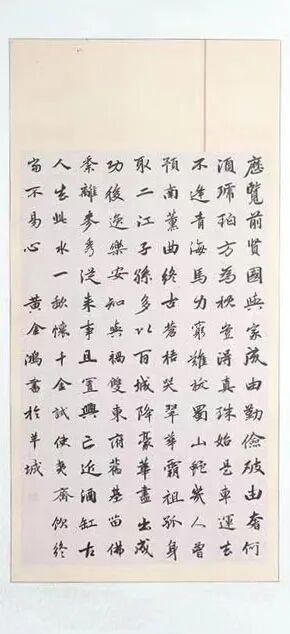 歷覽前賢國與家成由勤儉破由奢何
須琥珀方為枕豈得真珠始是車運去
不逢青海馬力窮難拔蜀山蛇幾人曾
預南薰曲終古蒼梧哭翠華霸祖孤身
取二江子孫多以百城降豪華盡出成
功後逸樂安知與禍雙東府舊基留佛
黍離麥秀從来事且置興亡近酒缸古
人云此水一歃懷千金試使夷齊飲終
當不易心 黃金鴻書於羊城